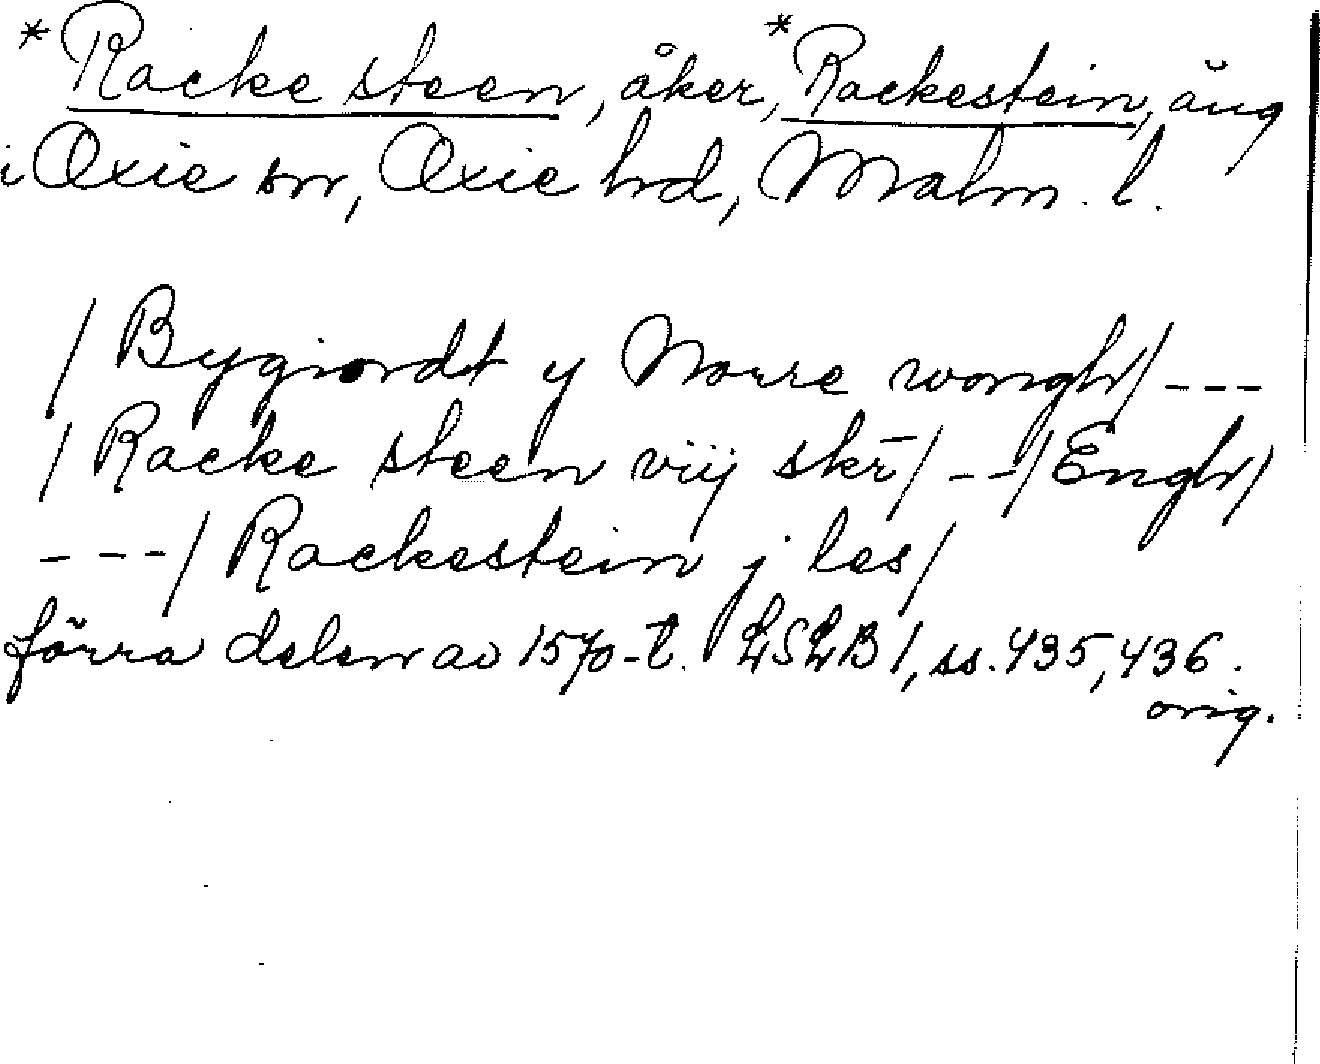 *Racke steen, åker, *Rackestein, äng
i Oxie sn, Oxie hd, Malm. l.
/Bygiordt y Norre wongh/ ---
/Racke steen viij skr̄/ --/Engh/
---/Rackestein j les/
förra delen av 1570-t. LSLB 1, ss. 435, 436.
orig.